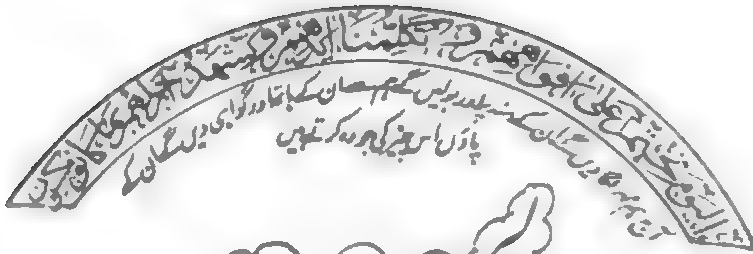 الیوم نختم علی افواههم و تکلمنا ایدیهم و تشهد ارجلهم بما کانوا یکسبون
آج ہم مہر لگا دیں گے ان کے منہ پر اور بولیں گے ہم سے ان کے ہاتھ اور گواہی دیں گے ان کے
پاؤں اس چیز کی جو وہ کرتے ہیں